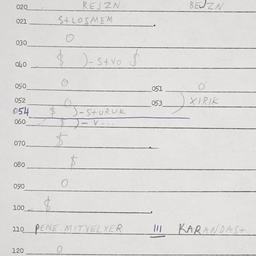 020 REJZN BEJZN
021 S+LOSMEM
030 O
040 $ )-S+VO $
050 O 051 O
052 O 053 ) XIRIK
054 $ )-S+URUK
060 $ )-V...
070 $
080 $
090 O
100 $
110 PENE MITVELXER 111 KARANDAS+
120 O